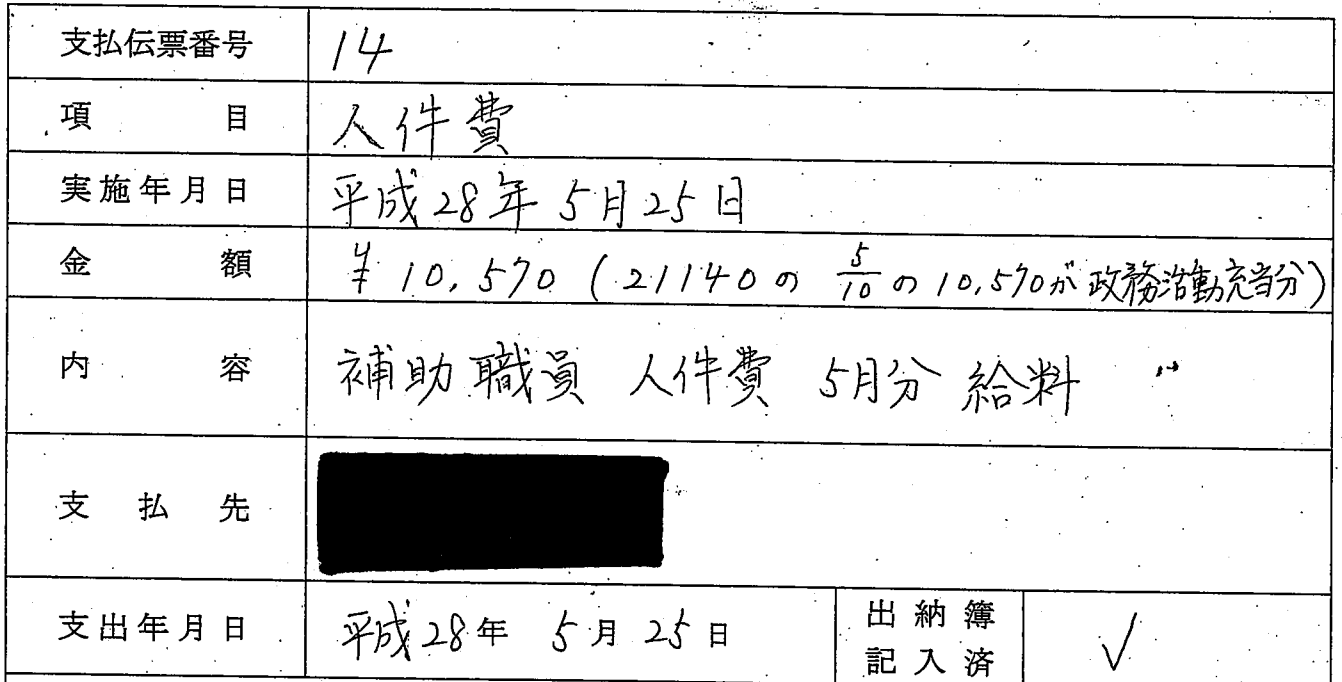 支払伝票番号 14
項目 人件費
実施年月日 平成28年5月25日
金額 ¥10,570 (21140の 5/10 の10,570が政務活動充当分)
内容 補助職員 人件費 5月分 給料
支払先
支出年月日 平成28年 5月25日 出納簿記入済 ✓